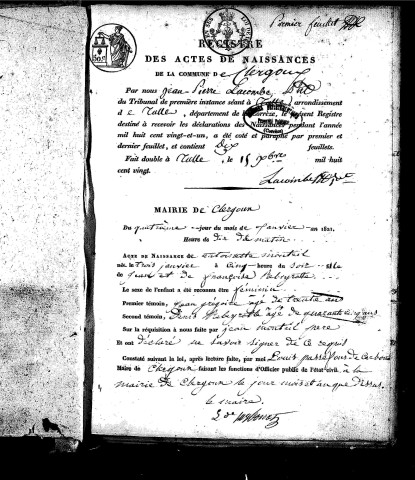 Premier feuillet
REGISTRE
DES ACTES DE NAISSANCES
DE LA COMMUNE D e Clergoux
Par nous Jean-Pierre Lacombe
du Tribunal de première instance séant à Tulle, arrondissement
d e Tulle, département de la Corrèze, le présent Registre
destiné à recevoir les déclarations des Naissances pendant l'année
mil huit cent vingt-et-un, a été coté et paraphé par premier et
dernier feuillet, et contient Dix feuillets.
Fait double à Tulle, le 15 Xbre mil huit
cent vingt.
Lacombe
MAIRIE DE Clergoux
Du quatrième jour du mois de Janvier an 1821,
Heure de Dix du matin
ACTE DE NAISSANCE DE antoinette monteil
née le trois janvier à cinq heure du soir fille
de jean et de françoise
Le sexe de l'enfant a été reconnu être féminin
Premier témoin, jean grégoire âgé de trente ans
Second témoin, Denis âgé de quarante
Sur la réquisition à nous faite par jean monteil pere
Et ont déclaré ne savoir signer de ce requis
Constaté suivant la loi, après lecture faite, par moi Louis
Maire de Clergoux faisant les fonctions d'Officier public de l'état civil, à la
mairie de Clergoux le jour mois et an que dessus
le maire